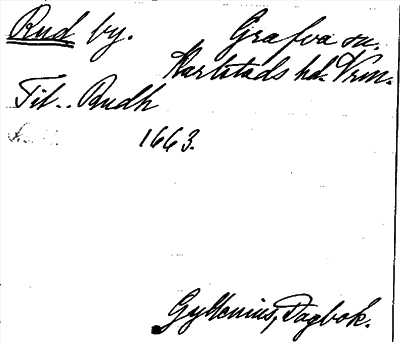 Rud by. Grafva sn.
Karlstads hd. Vrml.
Til.. Rudh
1663.
Gyllenius, Dagbok.